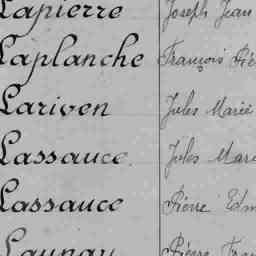 Lapierre Joseph Jean
Laplanche François
Lariven Jules Marie
Lassauce Jules
Lassauce Pierre
Launay Pierre